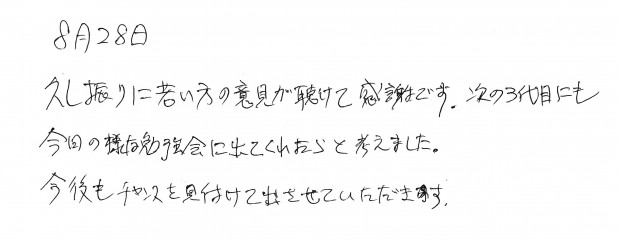 8月28日
久し振りに若い方の意見が聴けて感謝です。次の3代目にも
今回の様な勉強会に出てくれたらと考えました。
今後もチャンスを見付けて出させていただきます。